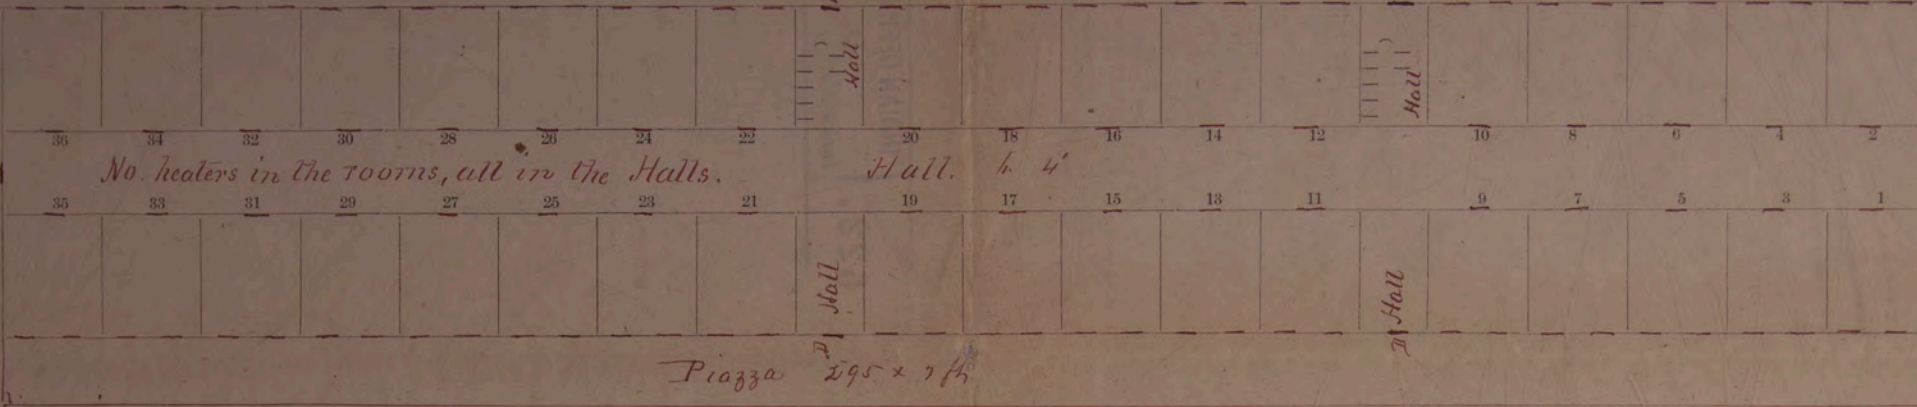 Hall Hall
36 34 32 30 28 26 24 22 20 18 16 14 12 10 8 6 4 2
No. heaters in the rooms, all in the Halls. Hall. h. 4'
35 33 31 29 27 25 23 21 19 17 15 13 11 9 7 5 3 1
Hall Hall
D D
Piazza 295 x 7 ft